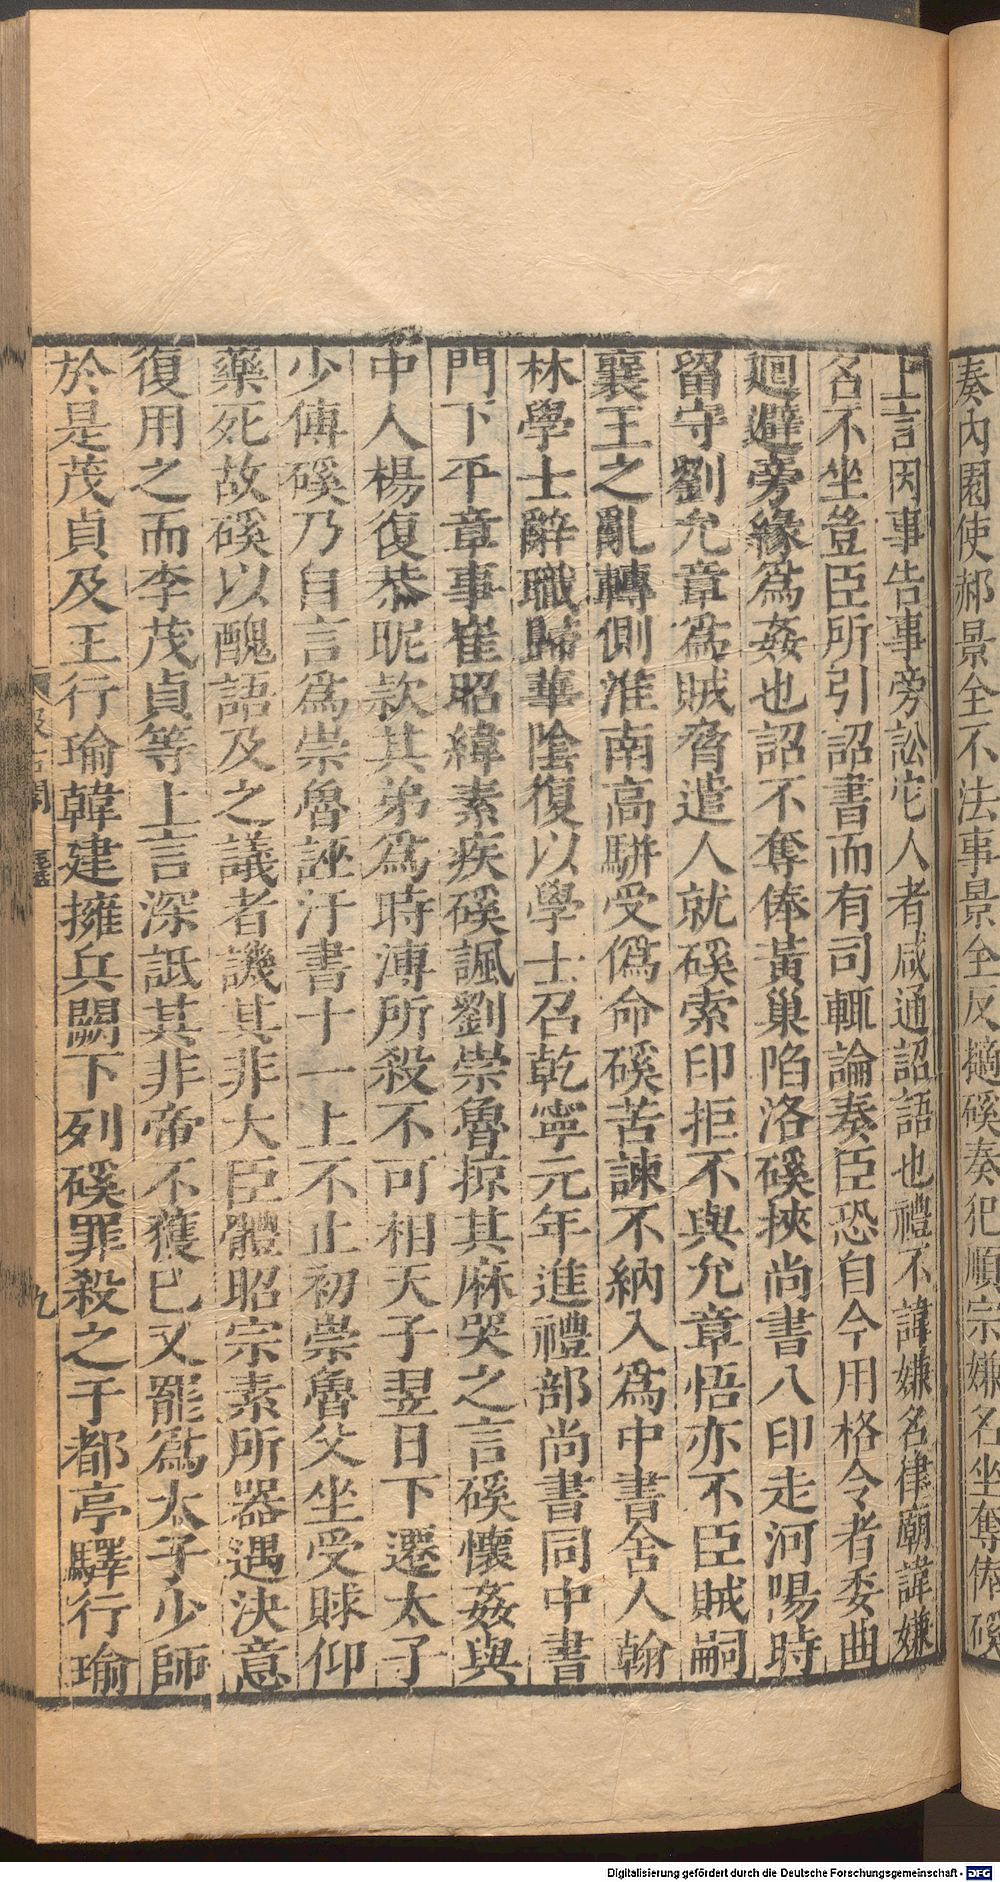 奏内園使郝景全不法事景全反擿磎奏犯順宗嫌名坐奪俸磎
上言因事告事旁訟它人者咸通詔語也禮不諱嫌名律廟諱嫌
名不坐豈臣所引詔書而有司輒論奏臣恐自今用格令者委曲
迴避旁緣爲姦也詔不奪俸黃巢陷洛磎挾尚書八印走河陽時
留守劉允章爲賊脅遣人就磎索印拒不與允章悟亦不臣賊嗣
襄王之亂轉側淮南高駢受僞命磎苦諫不納入爲中書舍人翰
林學士辭職歸華陰復以學士召乾寧元年進禮部尚書同中書
門下平章事崔昭緯素疾磎諷劉崇魯掠其麻哭之言磎懷姦與
中人楊復恭昵款其弟爲時溥所殺不可相天子翌日下遷太子
少傅磎乃自言爲崇魯誣汙書十一上不止初崇魯父坐受賕仰
藥死故磎以醜語及之議者譏其非大臣體昭宗素所器遇決意
復用之而李茂貞等上言深詆其非帝不獲已又罷爲太子少師
於是茂貞及王行瑜韓建擁兵闕下列磎罪殺之于都亭驛行瑜
九
Digitalisierung gefördert durch die Deutsche Forschungsgemeinschaft - DFG